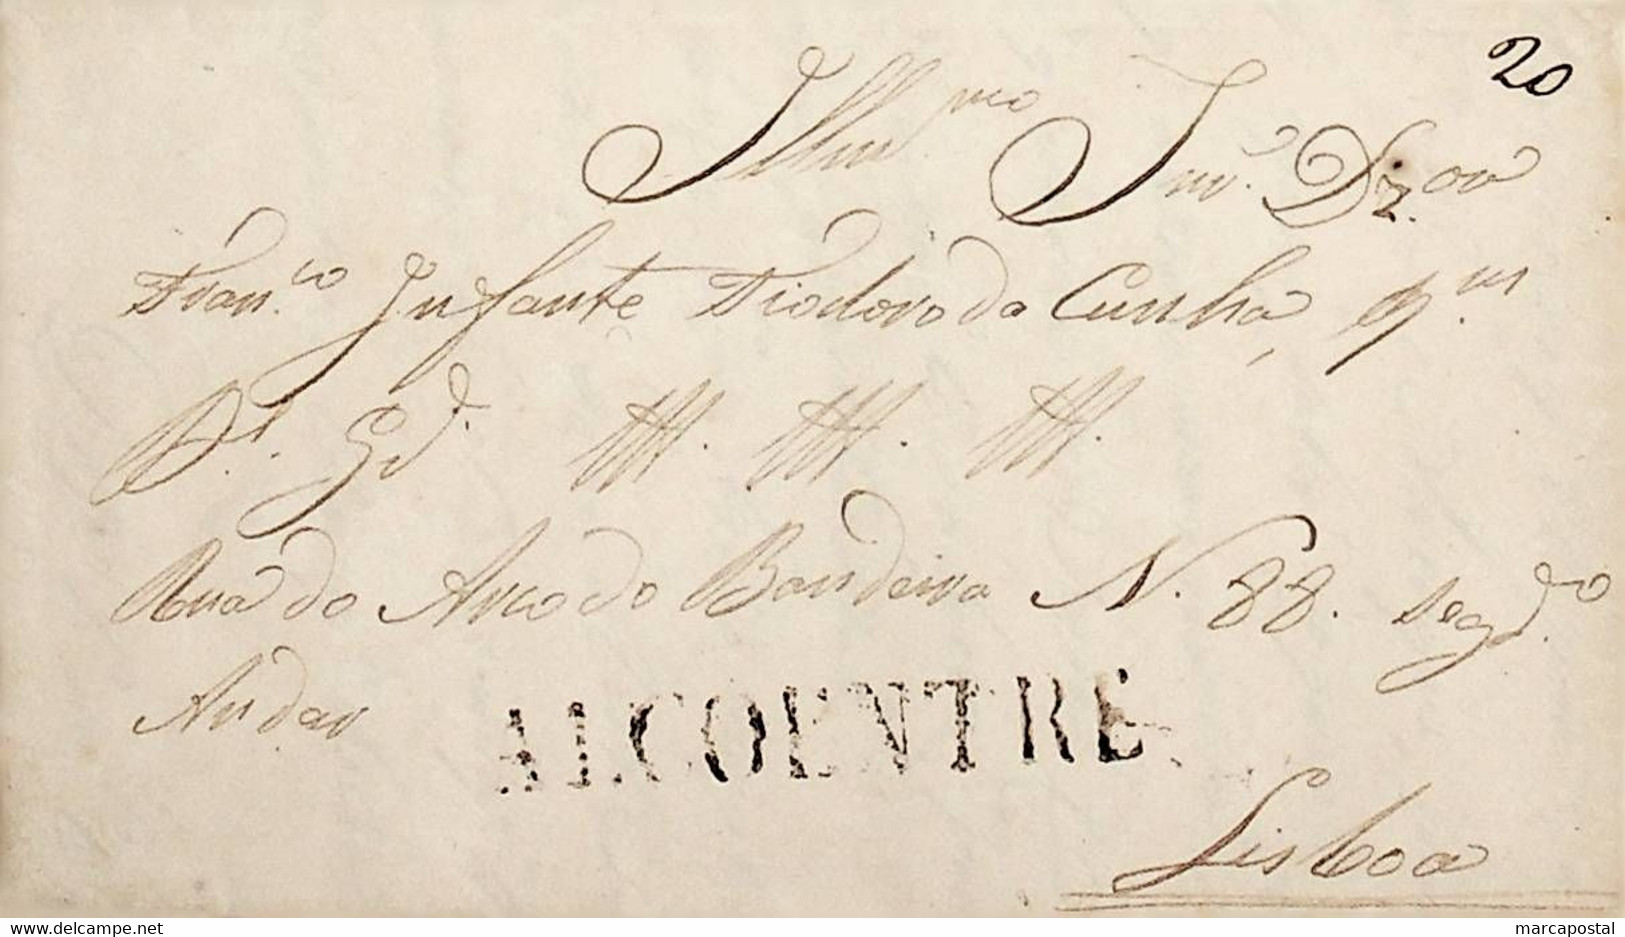 20
Illm.mo Snr. Dr.or
Fran.co Infante Tiodoro da Cunha, q.m
D.s G.d
Rua do Arco do Bandeira N. 88. segd.o
Andar
ALCOENTRE
Lisboa
delcampe.net
marcapostal